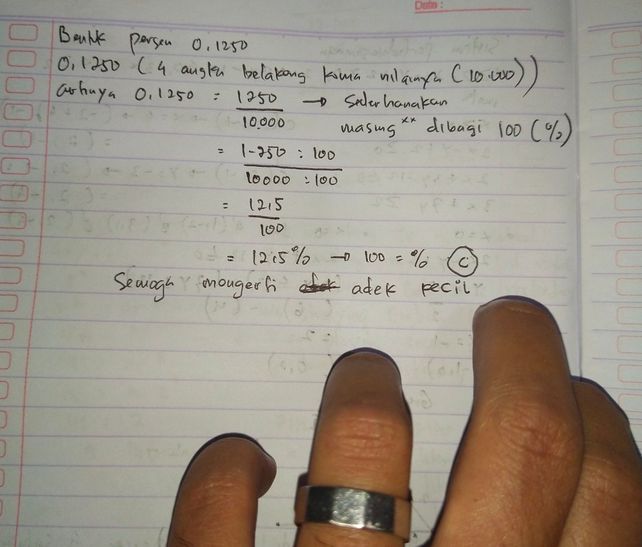 Date :
Bentuk persen 0,1250
0,1250 ( 4 angka belakang koma nilainya (10.000))
artinya 0,1250 = 1250 → Sederhanakan
10.000 masing ** dibagi 100 (%)
= 1.250 : 100
10000 : 100
= 12,5
100
= 12,5% → 100 = % (C)
Semoga mengerti adek pecil